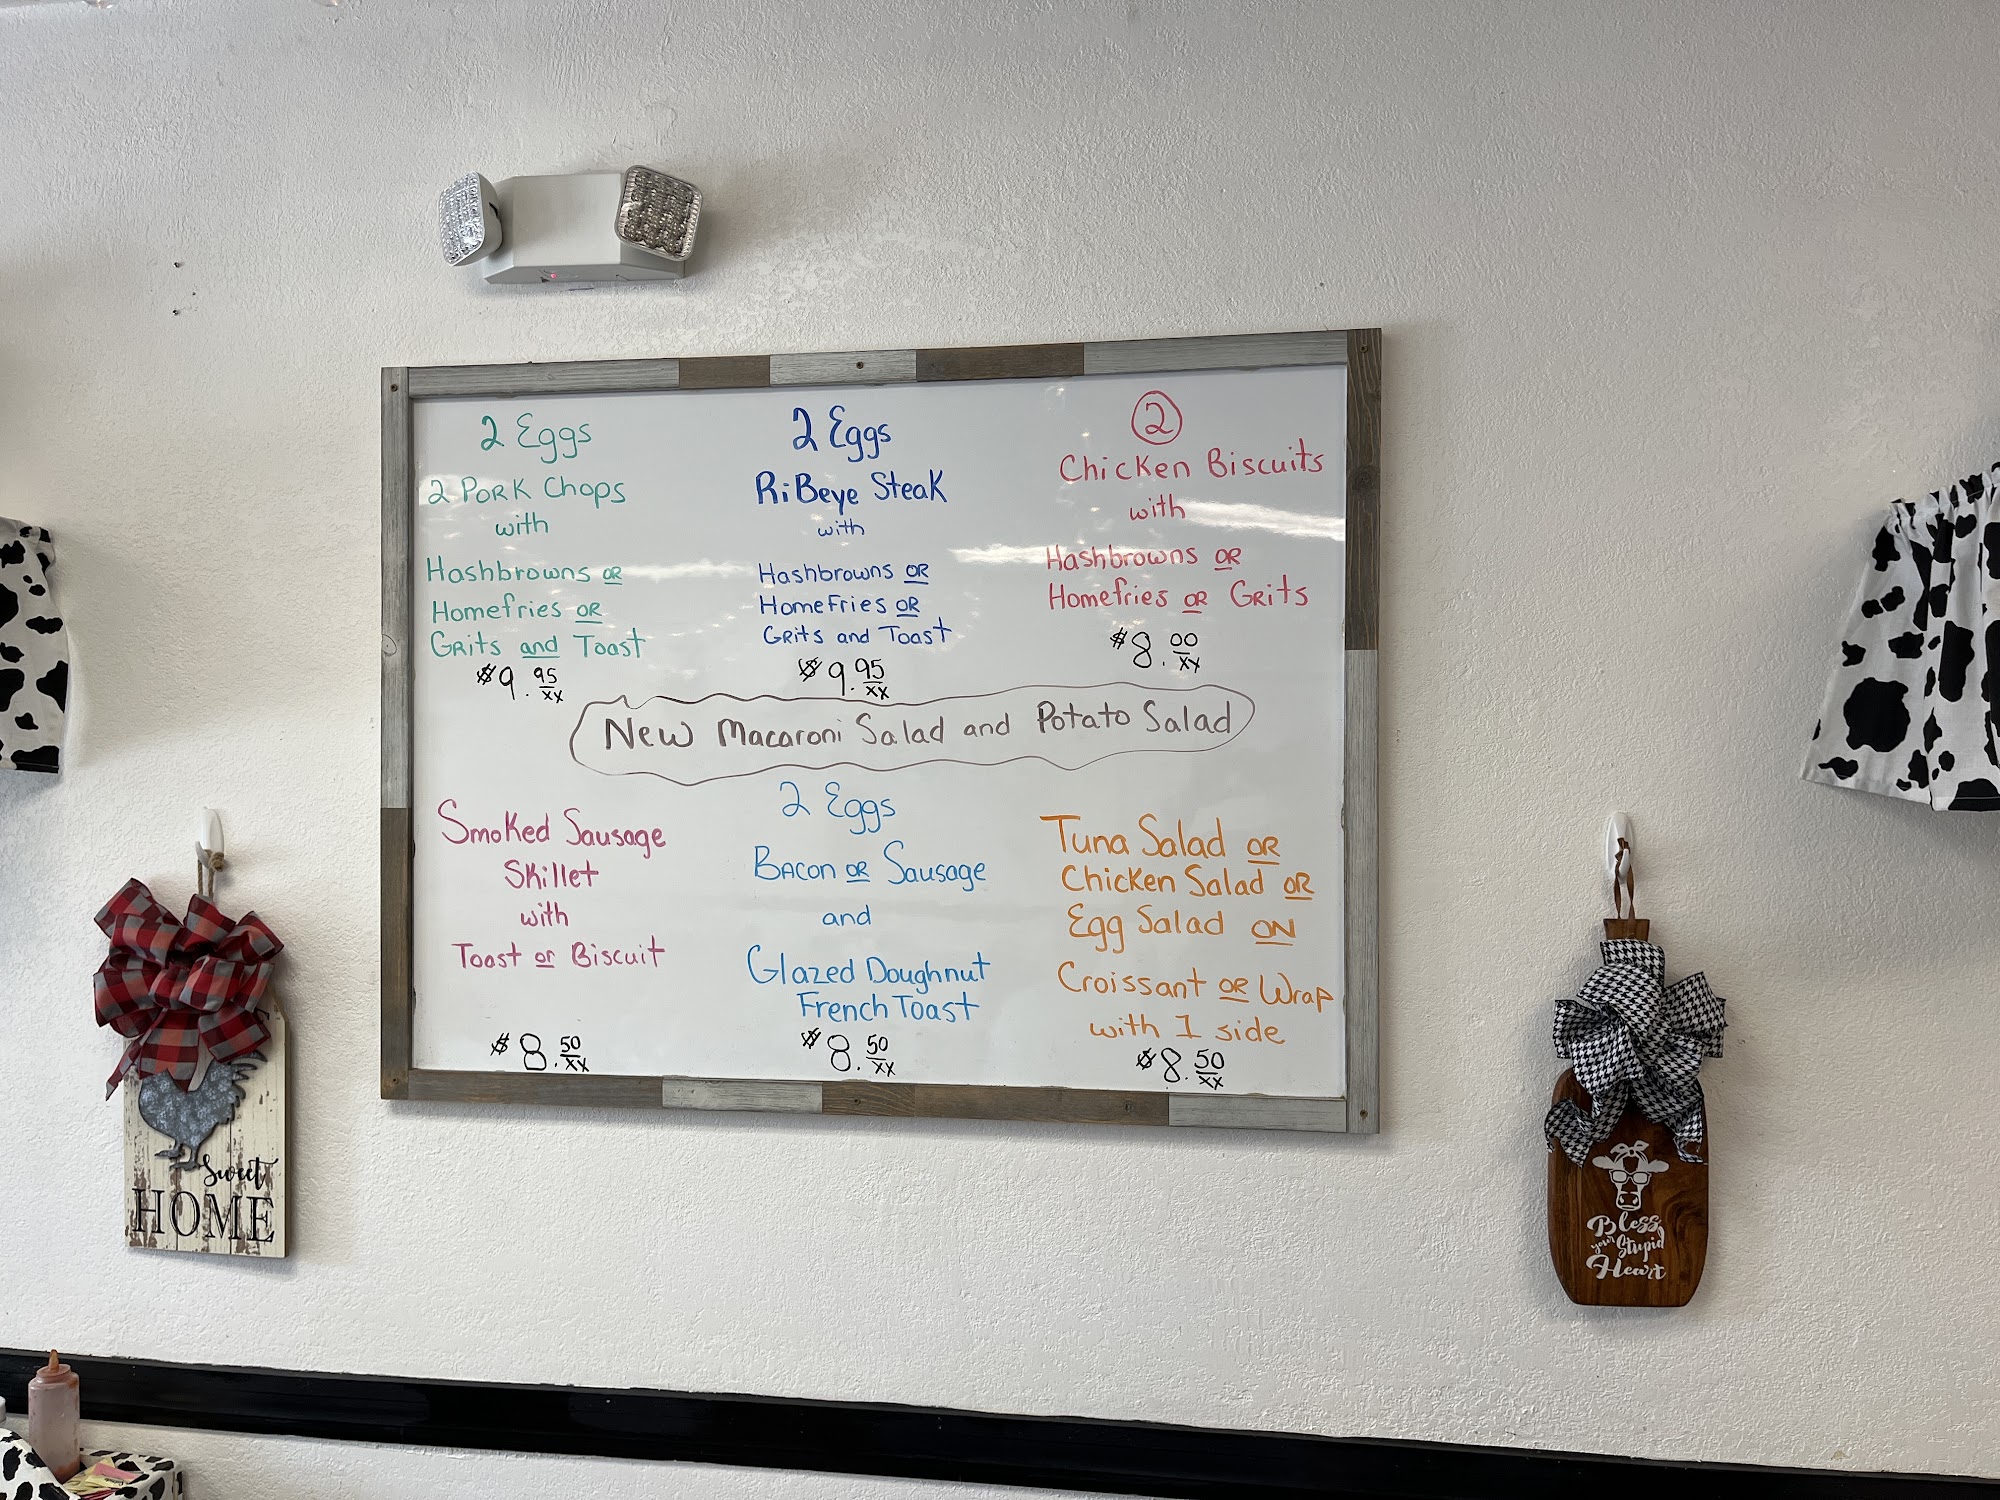 2 Eggs
2 Pork Chops
with
Hashbrowns or
Homefries or
Grits and Toast
$9.95/xx
2 Eggs
RiBeye Steak
with
Hashbrowns or
Homefries or
Grits and Toast
$9.95/xx
2
Chicken Biscuits
with
Hashbrowns or
Homefries or Grits
$8.00/xx
New Macaroni Salad and Potato Salad
Smoked Sausage
Skillet
with
Toast or Biscuit
$8.50/xx
2 Eggs
Bacon or Sausage
and
Glazed Doughnut
French Toast
$8.50/xx
Tuna Salad or
Chicken Salad or
Egg Salad on
Croissant or Wrap
with 1 side
$8.50/xx
Sweet
HOME
Bless
your Stupid
Heart